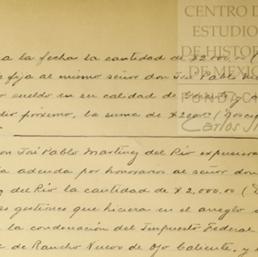 CENTRO D
ESTUDIO
DE HISTOR
DE MÉXIC
FUNDACIÓN
Carlos
a la fecha la cantidad de $2,000.00 (
se fija al mismo señor don José Pablo
sueldo en su calidad de
próximo, la suma de
on José Pablo Martínez del Río
adeuda por honorarios al señor don
del Río la cantidad de $2,000.00 (
gestiones que hiciera en el arreglo
la condonación del Impuesto Federal
de Rancho Nuevo de Ojo Caliente, y